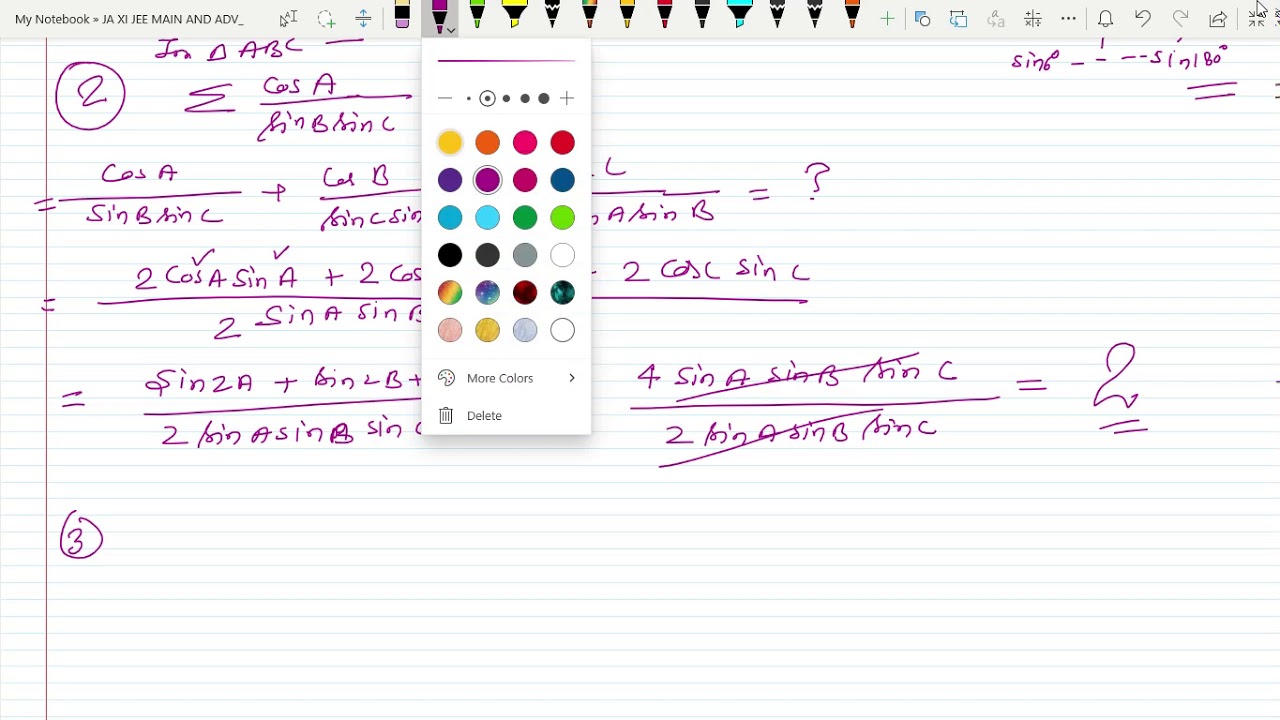 My Notebook » JA XI JEE MAIN AND ADV_
In △ ABC
sin6° - - - - - sin180°
2 Σ cos A / sinB sin C
= cos A / sin B sin C + cos B / sin C sin C / n A sin B = ?
= 2 cos A sin A + 2 cos 2 cos C sin C / 2 sin A sin B
= sin 2A + sin 2B + / 2 sin A sin B sin C 4 sin A sin B sin C / 2 sin A sin B sin C = 2
3
More Colors
Delete